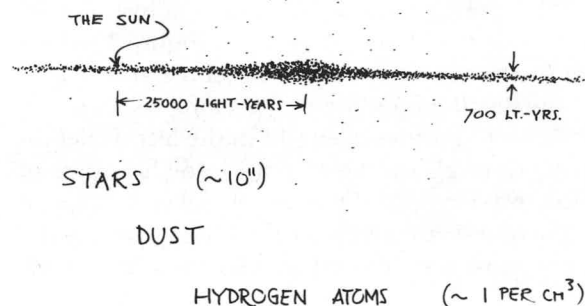 THE SUN
25000 LIGHT-YEARS
700 LT.-YRS.
STARS (~10¹¹)
DUST
HYDROGEN ATOMS (~ 1 PER CM³)